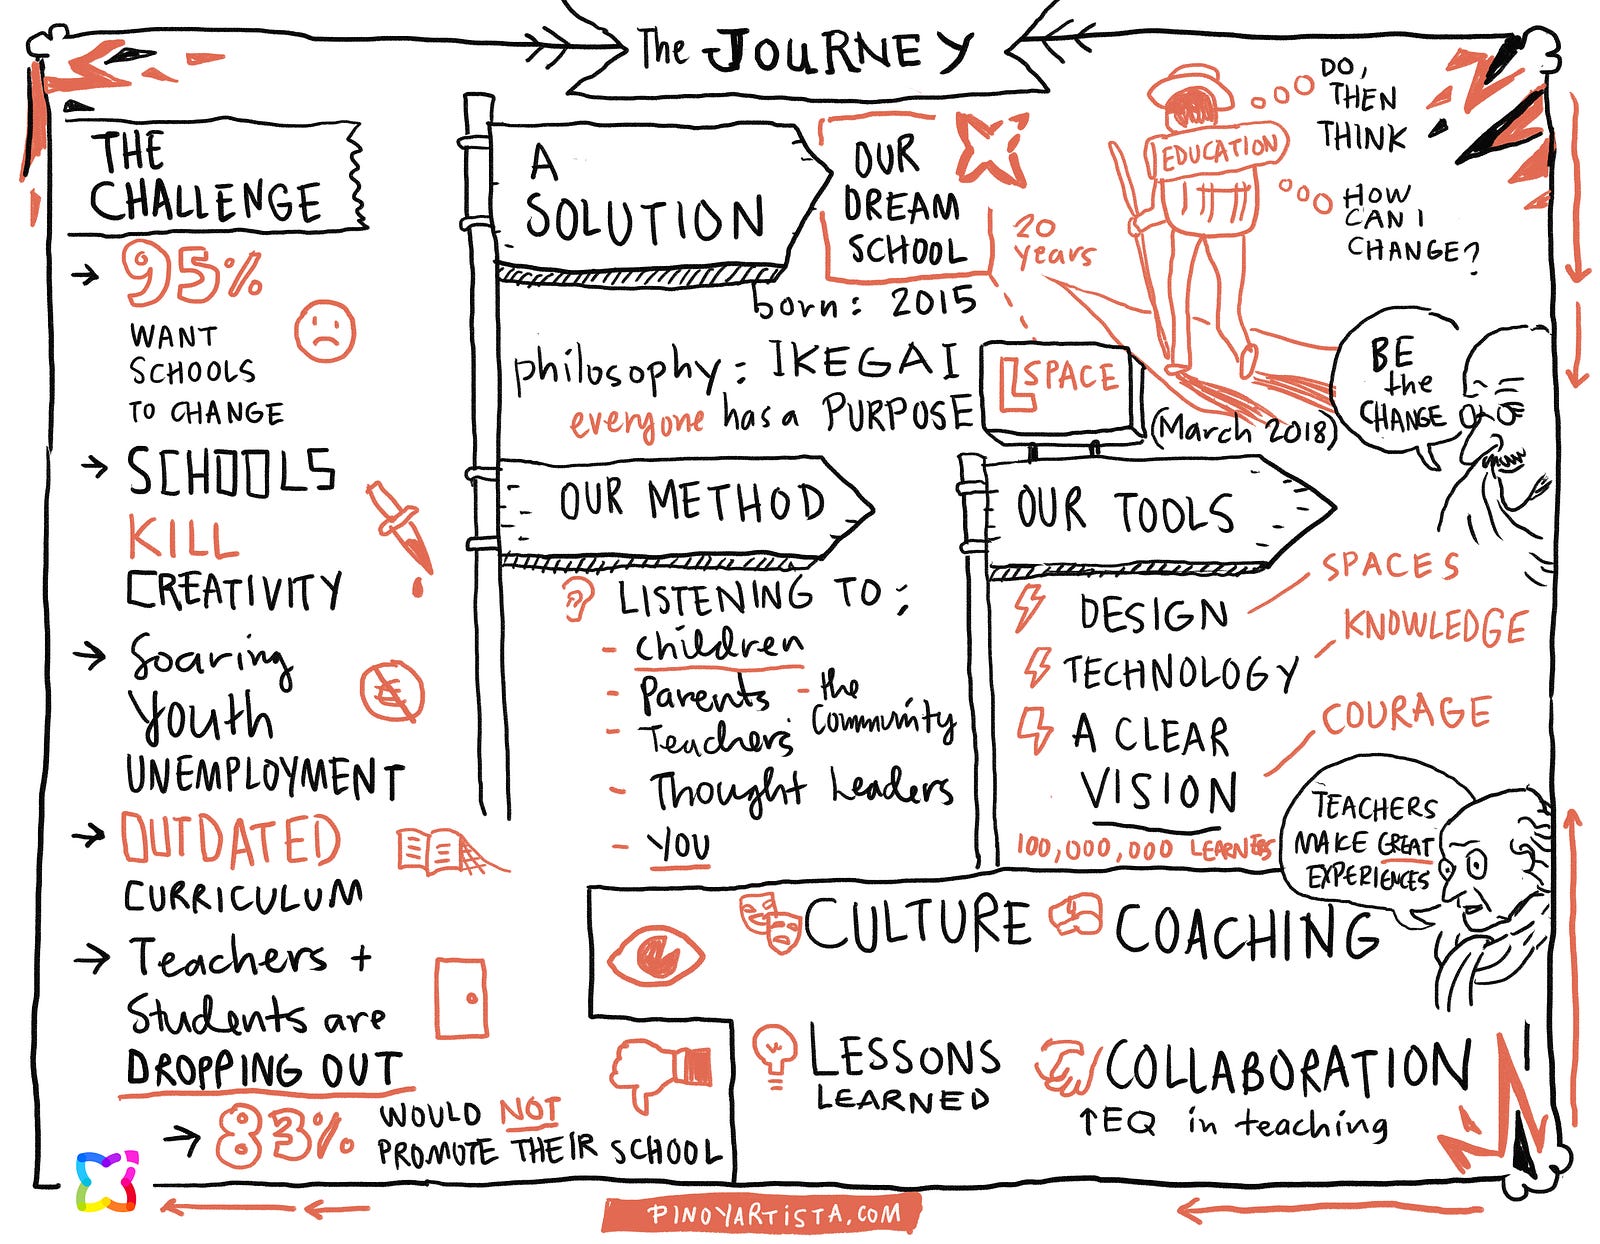 The JOURNEY
THE
CHALLENGE
95%
WANT
SCHOOLS
TO CHANGE
SCHOOLS
KILL
CREATIVITY
Soaring
Youth
UNEMPLOYMENT
OUTDATED
CURRICULUM
Teachers +
Students are
DROPPING OUT
83%
WOULD NOT
PROMOTE THEIR SCHOOL
A
SOLUTION
OUR
DREAM
SCHOOL
born: 2015
philosophy: IKEGAI
everyone has a PURPOSE
20
years
EDUCATION
DO,
THEN
THINK
HOW
CAN I
CHANGE?
LSPACE
(March 2018)
BE
the
CHANGE
OUR METHOD
LISTENING TO:
- children
- Parents - the
Community
- Teachers
- Thought Leaders
- YOU
OUR TOOLS
DESIGN
SPACES
TECHNOLOGY
KNOWLEDGE
A CLEAR
VISION
COURAGE
100,000,000 LEARNERS
TEACHERS
MAKE GREAT
EXPERIENCES
CULTURE
COACHING
LESSONS
LEARNED
COLLABORATION
↑EQ in teaching
PINOYARTISTA.COM